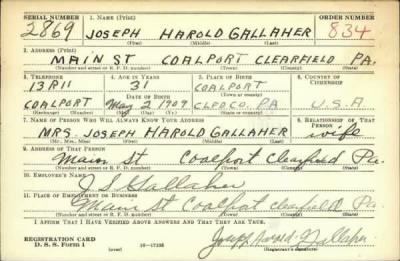 SERIAL NUMBER 1. NAME (Print) ORDER NUMBER
2869 JOSEPH HAROLD GALLAHER 834
(First) (Middle) (Last)
2. ADDRESS (Print)
MAIN ST COALPORT CLEARFIELD PA.
(Number and street or R. F. D. number) (Town) (County) (State)
3. TELEPHONE 4. AGE IN YEARS 5. PLACE OF BIRTH 6. COUNTRY OF CITIZENSHIP
13R11 31 COALPORT
DATE OF BIRTH
COALPORT May 2 1909 CLFD CO. PA U.S.A.
(Exchange) (Number) (Mo.) (Day) (Yr.) (Town) (County) (State or country)
7. NAME OF PERSON WHO WILL ALWAYS KNOW YOUR ADDRESS 8. RELATIONSHIP OF THAT PERSON
MRS. JOSEPH HAROLD GALLAHER wife
(Mr., Mrs., Miss) (First) (Middle) (Last)
9. ADDRESS OF THAT PERSON
Main St Coalport Clearfield Pa.
(Number and street or R. F. D. number) (Town) (County) (State)
10. EMPLOYER'S NAME
J S Gallaher
11. PLACE OF EMPLOYMENT OR BUSINESS
Main St Coalport Clearfield Pa
(Number and street or R. F. D. number) (Town) (County) (State)
I AFFIRM THAT I HAVE VERIFIED ABOVE ANSWERS AND THAT THEY ARE TRUE.
REGISTRATION CARD
D. S. S. Form 1 16—17105 Joseph Harold Gallaher